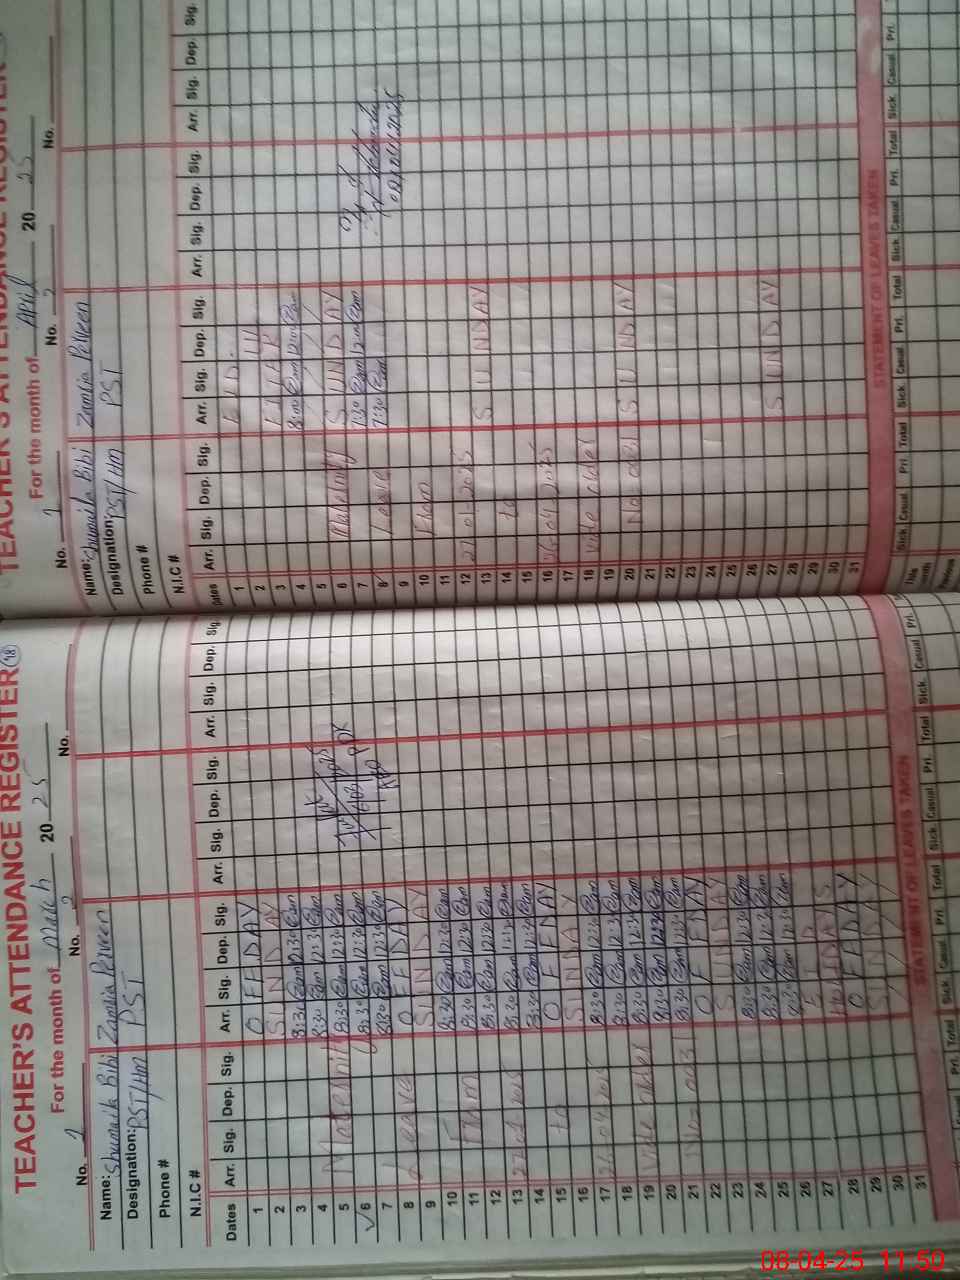 TEACHER'S ATTENDANCE REGISTER 48
For the month of March 20 25
No. 1 No. 2 No.
Name: Shumaila Bibi Zamzia Perveen
Designation: PST/HM PST
Phone #
N.I.C #
Dates Arr. Sig. Dep. Sig. Arr. Sig. Dep. Sig. Arr. Sig. Dep. Sig. Arr. Sig. Dep. Sig.
1 OFF DAY
2 SUNDAY
3 8:30 12:30
4 Maternity 8:30 12:30
5 8:30 12:30
6 8:30 12:30
7 8:30 12:30
8 Leave OFF DAY
9 SUNDAY
10 From 8:30 12:30
11 8:30 12:30
12 8:30 12:30
13 8:30 12:30
14 8:30 12:30
15 to OFF DAY
16 SUNDAY
17 8:30 12:30
18 8:30 12:30
19 Vide order 8:30 12:30
20 8:30 12:30
21 No= 0031 8:30 12:30
22 OFF DAY
23 SUNDAY
24 8:30 12:30
25 8:30 12:30
26 8:30 12:30
27
28
29 OFF DAY
30 SUNDAY
31
STATEMENT OF LEAVES TAKEN
Sick Casual Pri. Total Sick Casual Pri. Total Sick Casual Pri. Total Sick Casual Pri.
TEACHER'S ATTENDANCE REGISTER
For the month of April 20 25
No. 1 No. 2 No.
Name: Shumaila Bibi Zamzia Perveen
Designation: PST/HM PST
Phone #
N.I.C #
Dates Arr. Sig. Dep. Sig. Arr. Sig. Dep. Sig. Arr. Sig. Dep. Sig. Arr. Sig. Dep. Sig.
1 EID
2
3
4 8:00 12:00
5
6 Maternity SUNDAY
7 7:30 12:00
8 Leave 7:30
02/04/2025
9
10 From
11
12 27-01-2025
13 SUNDAY
14 to
15
16 26-04-2025
17
18 Vide order
19
20 No 0031 SUNDAY
21
22
23
24
25
26
27 SUNDAY
28
29
30
31
STATEMENT OF LEAVES TAKEN
Sick Casual Pri. Total Sick Casual Pri. Total Sick Casual Pri. Total Sick Casual Pri.
This
month
Previous
08-04-25 11:50